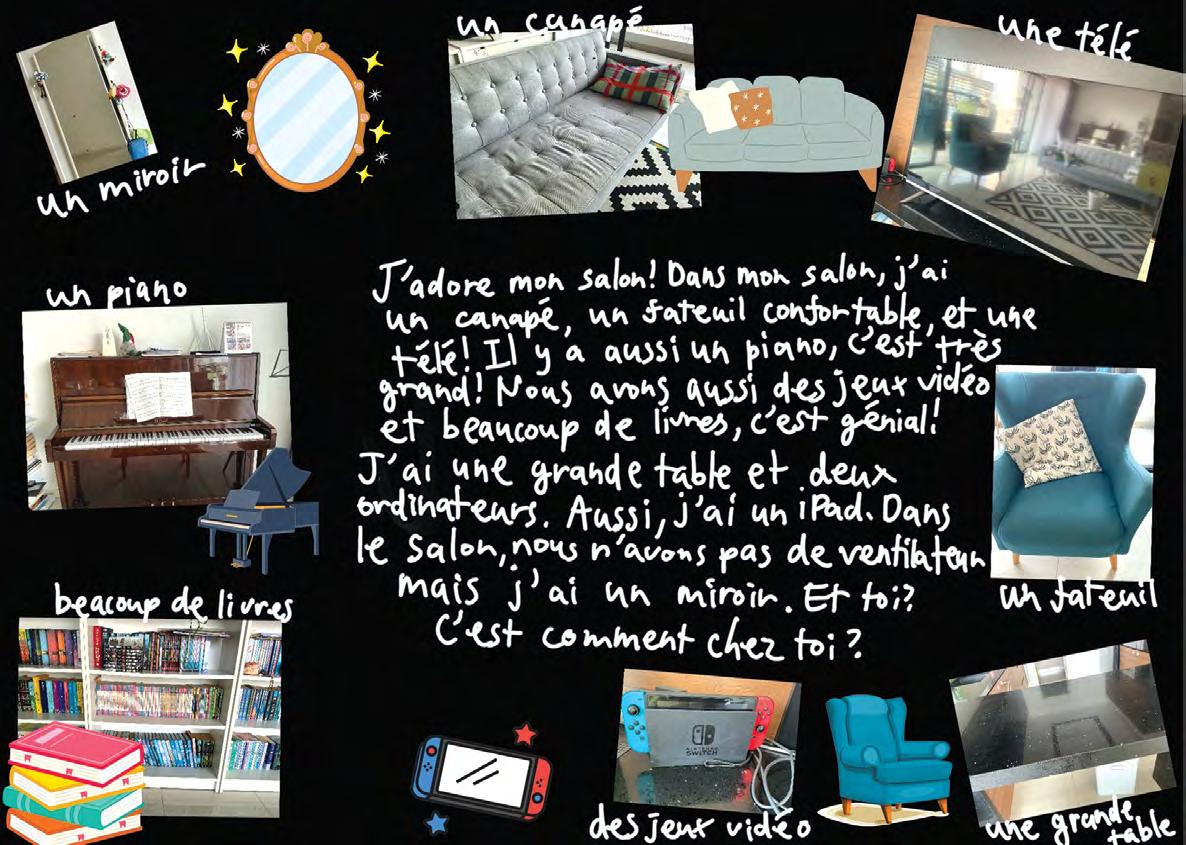 un canapé
une télé
un miroir
un piano
J'adore mon salon! Dans mon salon, j'ai
un canapé, un fateuil confortable, et une
télé! Il y a aussi un piano, c'est très
grand! Nous avons aussi des jeux vidéo
et beaucoup de livres, c'est génial!
J'ai une grande table et deux
ordinateurs. Aussi, j'ai un iPad. Dans
le salon, nous n'avons pas de ventilateur
mais j'ai un miroir. Et toi?
C'est comment chez toi?
un fateuil
beacoup de livres
NINTENDO
SWITCH
des jeux vidéo
une grande
table